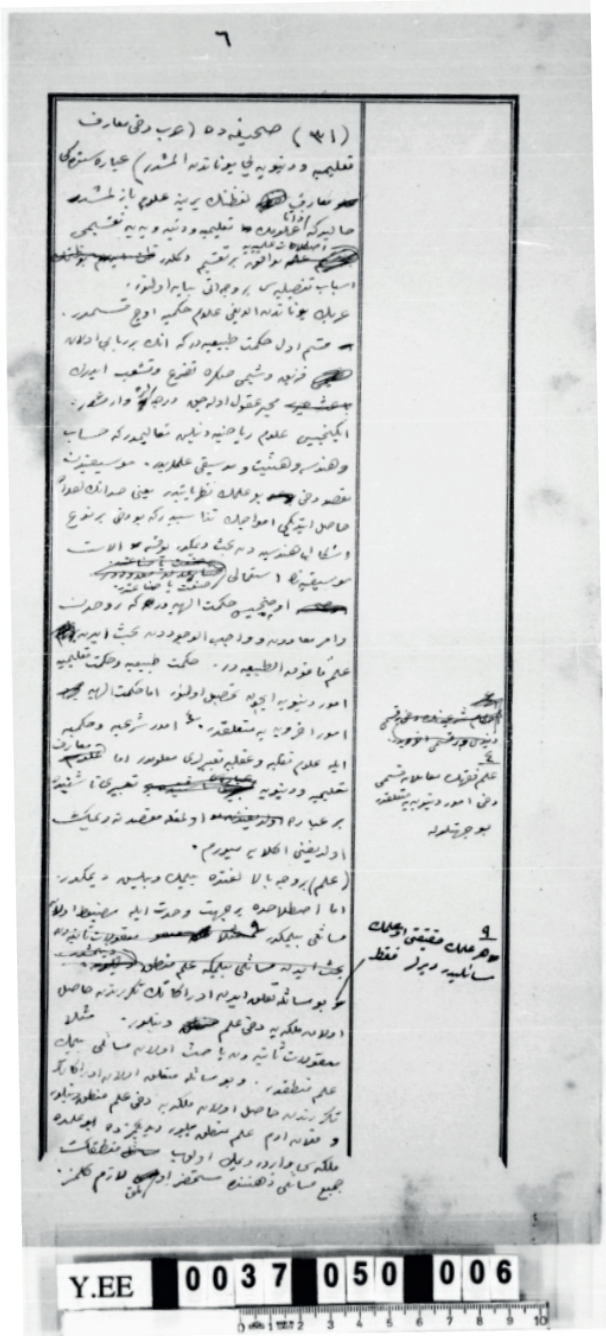 ٦
(٣١) صحيفه ده (عرب دخى معارف
تعليميه و دنيويه يى يوناندن المشدر) عباره سنده كى
معارف لفظنك يرينه علوم يازلمشدر
حالبوكه علومك تعليميه و دنيويه يه تقسيمى
اصطلاحات علميه يه موافق بر تقسيم دكلدر
اسباب تفصيليه سى بر وجه آتى بيان اولنور.
عربك يوناندن الديغى علوم حكميه اوج قسمدر.
قسم اول حكمت طبيعيه در كه انك بر بابى اولان
فزيق و شيمى صكره تفرع و تشعب ايدرك
محير عقول اوله جق درجه يه وارمشدر.
ايكنجيسى علوم رياضيه دنيلن تعاليمدر كه حساب
و هندسه و هيئت و موسيقى علملريدر. موسيقيدن
مقصود دخى بو علمك نظرياتيدر يعنى صدانك هواده
حاصل ايتديكى امواجك تناسبيدر كه بو دخى بر نوع
اشكال هندسيه دن بحث ديمكدر يوقسه الات
موسيقيه نك استعمالى صنعت يا صناعتدر
اوچنجيسى حكمت الهيه در كه روحدن
و امر معاددن و واجب الوجوددن بحث ايدر
علم ما فوق الطبيعه در. حكمت طبيعيه و حكمت تعليميه
امور دنيويه ايچون تحصيل اولنور اما حكمت الهيه
امور اخرويه يه متعلقدر. امور شرعيه و حكميه
ايله علوم نقليه و عقليه تعبيرلرى معلومدر اما معارف
تعليميه و دنيويه تعبيرى ناشنيده
بر عباره اولمغله مقصد نه ديمك
اولديغنى اكلايه ميورم.
(علم) بر وجه بالا لغتده بيلمك و بيليش ديمكدر.
اما اصطلاحده بر جهت وحدت ايله مضبوط اولان
مسائلى بيلمكدر معقولات ثانيه دن
بحث ايدن مسائلى بيلمكه علم منطق دينلور
بو مسائله تعلق ايدن ادراكاتك تكررندن حاصل
اولان ملكه يه دخى علم دينلور. مثلا
معقولات ثانيه دن باحث اولان مسائلى بيلمك
علم منطقدر. و بو مسائله متعلق اولان ادراكاتك
تكررندن حاصل اولان ملكه يه دخى علم منطق دينلور
و فلان ادم علم منطق بيلور ديديكمزده بو علمده
ملكه سى واردر ديمك اولوب منطقك
جميع مسائلى ذهننده مستحضر اولمق لازم كلمز.
علم فقهك معاملات قسمى
دخى امور دنيويه يه متعلقدر
بو جهتله
هر علمك حقيقتى او علمك
مسائليدر ديرلر فقط
Y.EE 0037 050 006
0 1 2 3 4 5 6 7 8 9 10